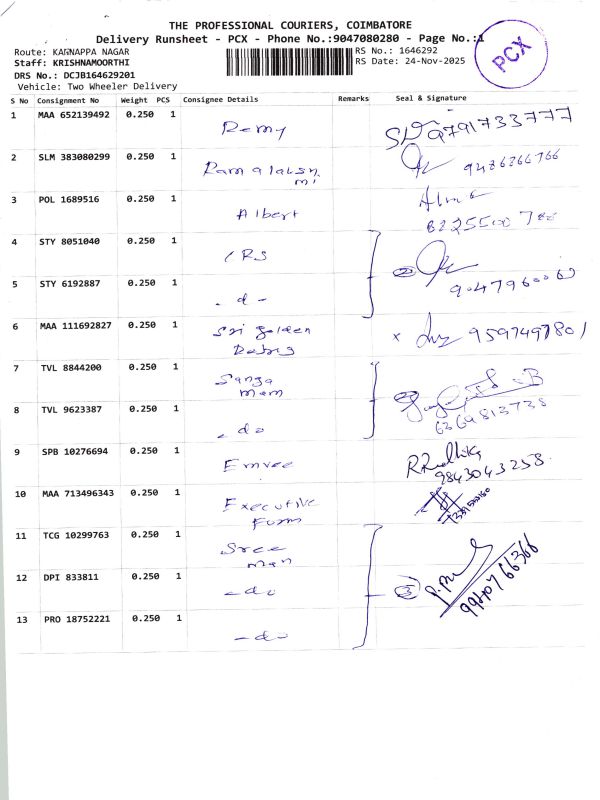 THE PROFESSIONAL COURIERS, COIMBATORE
Delivery Runsheet - PCX - Phone No.:9047080280 - Page No.:1
PCX
Route: KANNAPPA NAGAR
RS No.: 1646292
Staff: KRISHNAMOORTHI
RS Date: 24-Nov-2025
DRS No.: DCJB164629201
Vehicle: Two Wheeler Delivery
S No Consignment No Weight PCS Consignee Details Remarks Seal & Signature
1 MAA 652139492 0.250 1 Remy 9791733777
2 SLM 383080299 0.250 1 Ramalaksh
mi 9486266766
3 POL 1689516 0.250 1 Albert
4 STY 8051040 0.250 1 IRS
5 STY 6192887 0.250 1 - d - 2
6 MAA 111692827 0.250 1 Sri golden x 9597497801
7 TVL 8844200 0.250 1 Sanga
mam
8 TVL 9623387 0.250 1 - do 6369813738
9 SPB 10276694 0.250 1 Emvee R.Radhika
9843043258
10 MAA 713496343 0.250 1 Executive
11 TCG 10299763 0.250 1 Sree
man
12 DPI 833811 0.250 1 - do 3 9940766366
13 PRO 18752221 0.250 1 - do